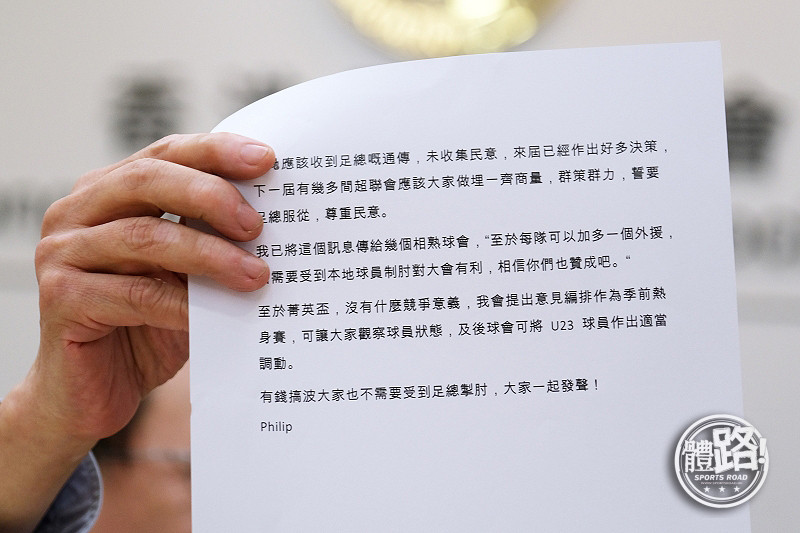 應該收到足總嘅通傳，未收集民意，來屆已經作出好多決策，
下一屆有幾多間超聯會應該大家做埋一齊商量，群策群力，誓要
足總服從，尊重民意。
我已將這個訊息傳給幾個相熟球會，“至於每隊可以加多一個外援，
需要受到本地球員制肘對大會有利，相信你們也贊成吧。“
至於菁英盃，沒有什麼競爭意義，我會提出意見編排作為季前熱
身賽，可讓大家觀察球員狀態，及後球會可將 U23 球員作出適當
調動。
有錢搞波大家也不需要受到足總掣肘，大家一起發聲！
Philip
體路!
SPORTS ROAD